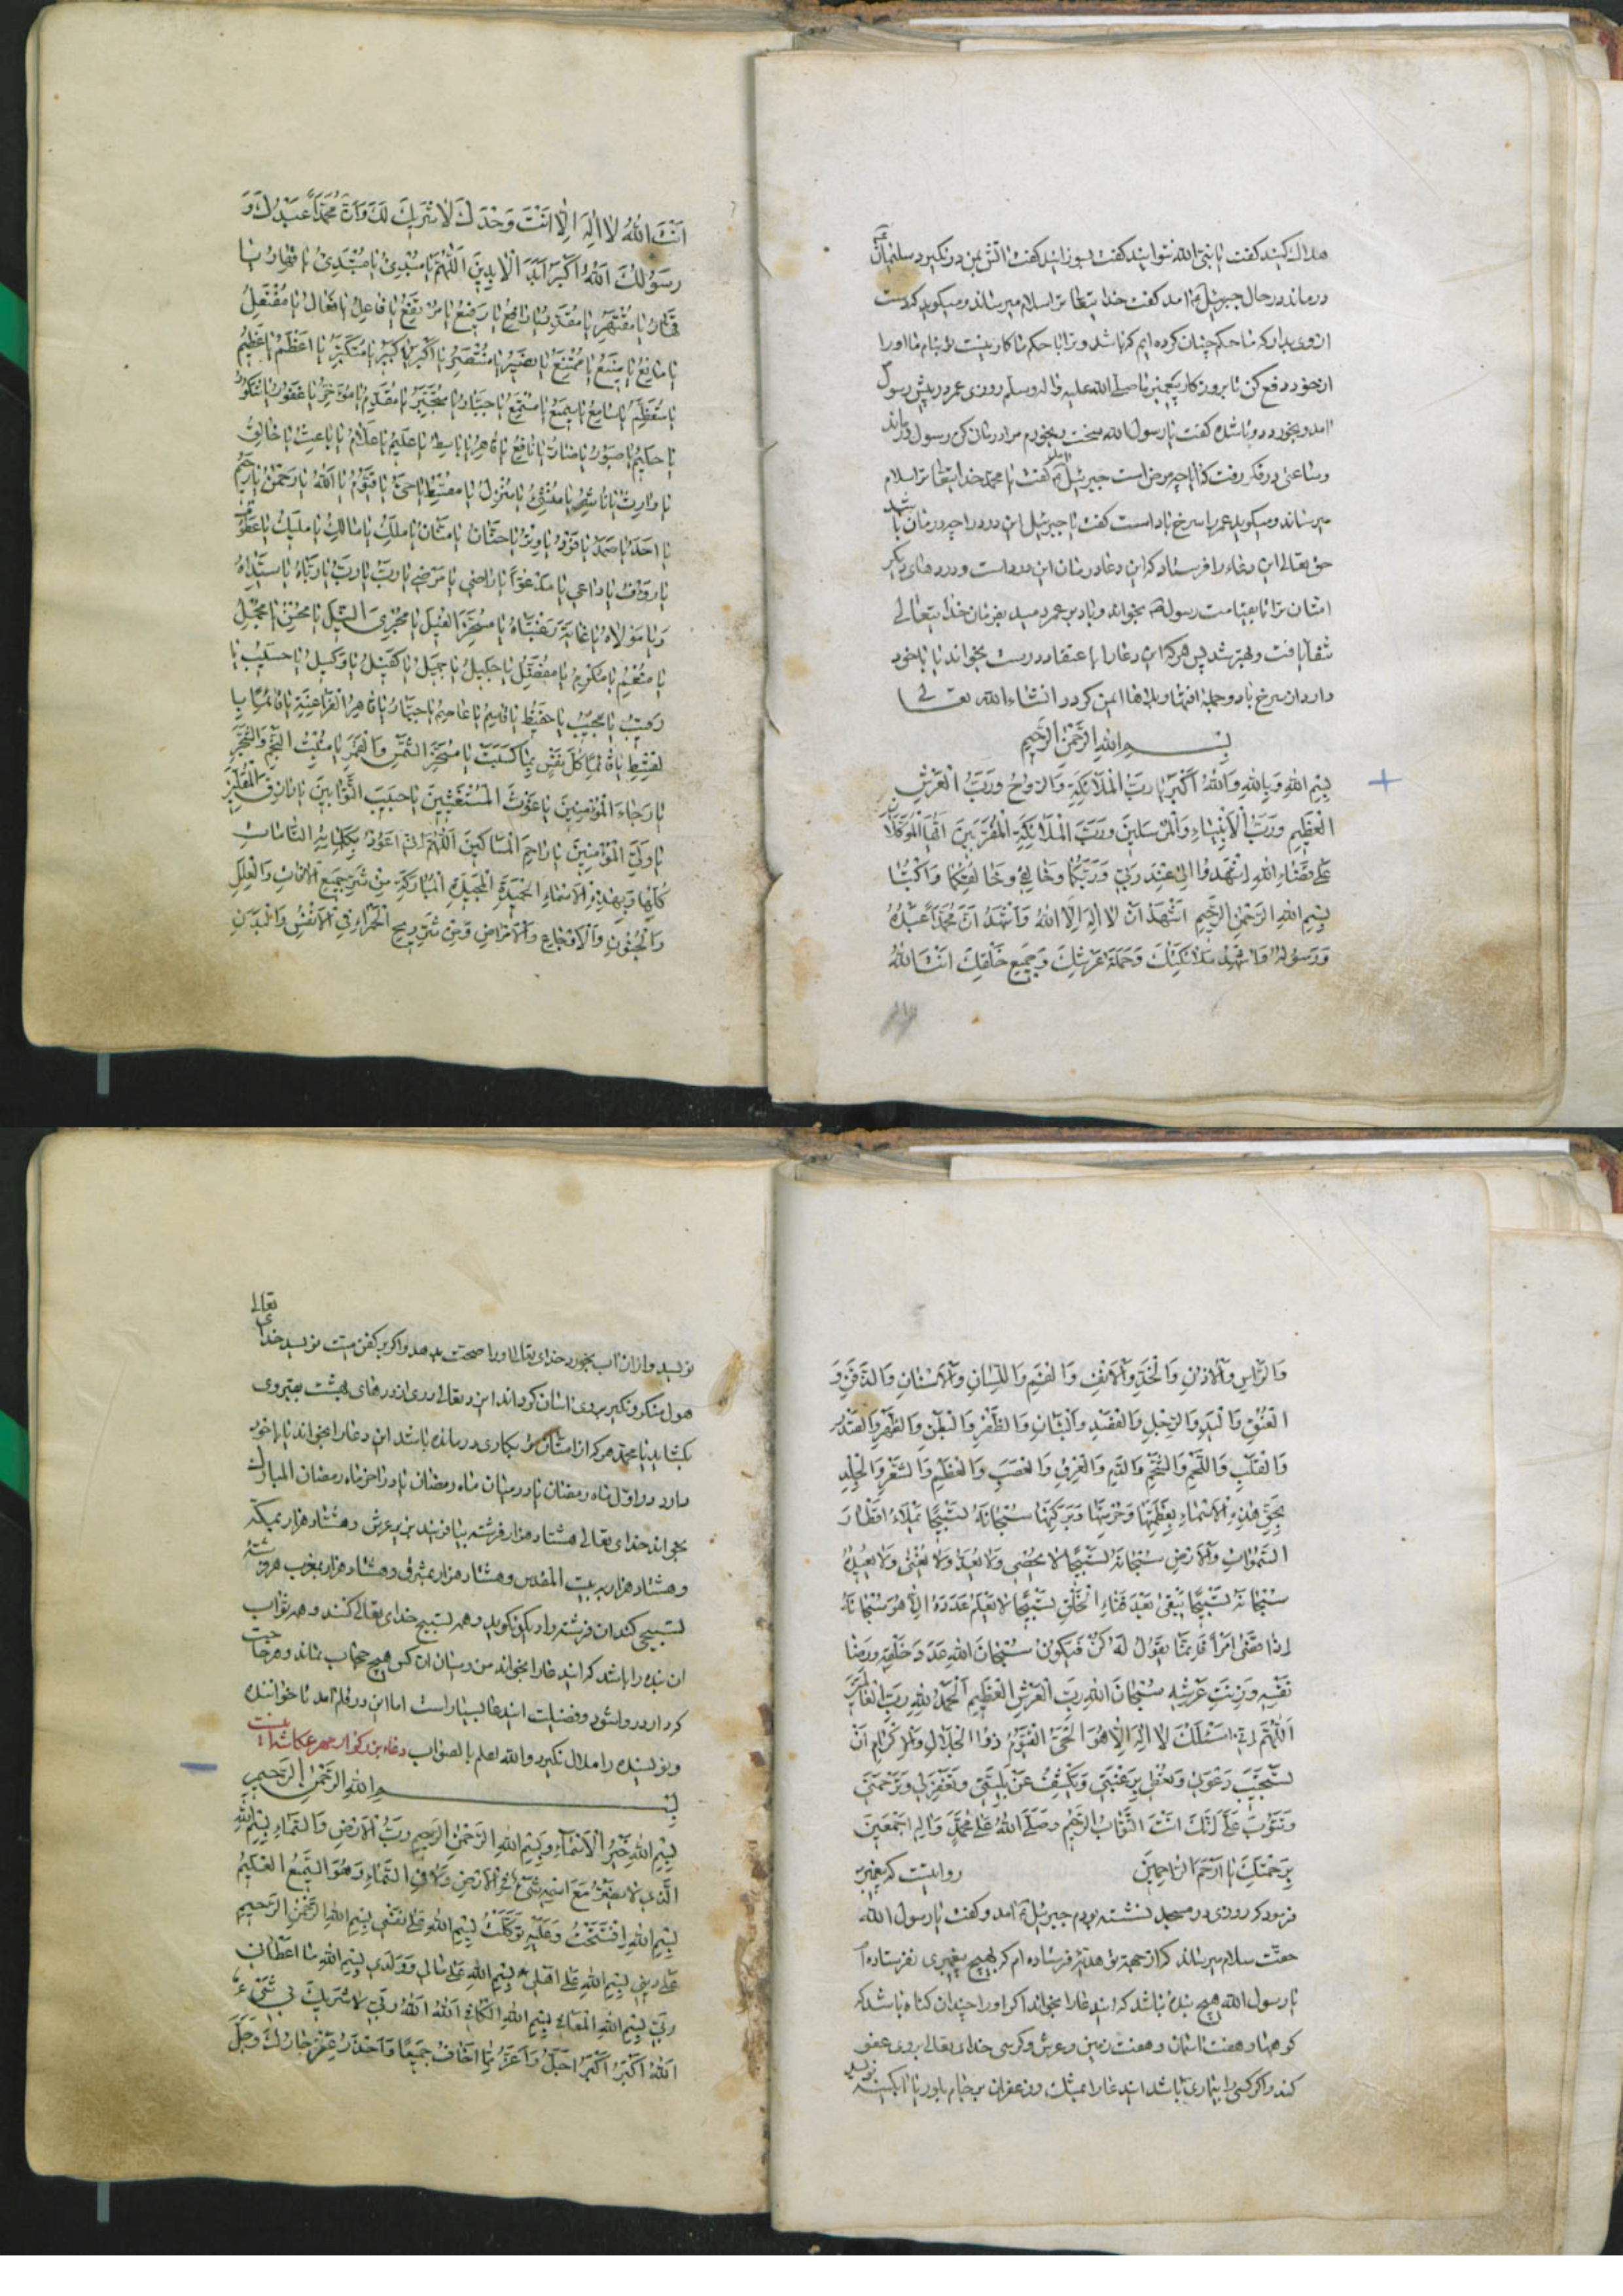 هلاك كنيد كفت يا نبى الله نتوانيد كفت بسوزانيد كفت اتش بمن درنكيرد سليمان
درماند در حال جبرئيل آمد كفت خدايتعالى ترا سلام ميرساند و ميكويد كه دست
از وى بدار كه ما حكم چنان كرده ايم كه باشد و ترا با حكم ما كار نيست
از خود دفع كن تا بروزكار پيغمبر ما صلى الله عليه واله وسلم روزى عمر در پيش رسول
امد و كفت يا رسول الله سخت رنجورم مرا درمان كن رسول
وساعتى در فكر رفت كه ايا چه مرض است جبرئيل كفت يا محمد خدايتعالى ترا سلام
ميرساند و ميكويد عمر را سرخ باد است كفت يا جبرئيل اين درد را چه درمان باشد
حق تعالى اين دعاء را فرستاد كه اين دعا درمان اين درد است و دردهاى ديكر
امتان ترا تا بقيامت رسول بخواند و باد بر عمر دميد بفرمان خدايتعالى
شفا يافت و بهتر شد پس هر كه اين دعا را با عتقاد درست بخواند يا با خود
دارد از سرخ باد و جمله افتها و بلاها ايمن كردد انشاء الله تعالى
بسم الله الرحمن الرحيم
بِسْمِ اللهِ وَبِاللهِ وَاللهُ اَكْبَرُ يا رَبَّ الْمَلآئِكَةِ وَالرُّوحُ وَرَبَّ الْعَرْشِ
الْعَظِيمِ وَرَبَّ الْاَنْبِيَاءِ وَالْمُرْسَلِينَ وَرَبَّ الْمَلآئِكَةِ الْمُقَرَّبِينَ اَيُّهَا الْمُوَكَّلانِ
عَلى قَضَاءِ اللهِ اِشْهَدُوا لِى عِنْدَ رَبِّى وَرَبِّكُمَا وَخَالِقِى وَخَالِقِكُمَا وَاكْتُبَا
بِسْمِ اللهِ الرَّحْمنِ الرَّحِيمِ اَشْهَدُ اَنْ لا اِلهَ اِلَّا اللهُ وَاَشْهَدُ اَنَّ مُحَمَّداً عَبْدُهُ
وَرَسُولُهُ وَاُشْهِدُ مَلائِكَتَكَ وَحَمَلَةَ عَرْشِكَ وَجَمِيعَ خَلْقِكَ اَنْتَ اللهُ
اَنْتَ اللهُ لا اِلهَ اِلَّا اَنْتَ وَحْدَكَ لا شَرِيكَ لَكَ وَاَنَّ مُحَمَّداً عَبْدُكَ وَ
رَسُولُكَ اَللهُ اَكْبَرُ اَبَدَ الْابِدِينَ اَللّهُمَّ يا مُبْدِئُ يا مُبْتَدِئُ يا قَهَّارُ يا
يا مُقْتَهِرُ يا رَافِعُ يا رَفِيعُ يا مُرْتَفِعُ يا فَاعِلُ يا فَعَّالُ يا مُفْتَعِلُ
يا مَانِعُ يا مَنِيعُ يا مُمْتَنِعُ يا نَصِيرُ يا مُنْتَصِرُ يا اَكْبَرُ يا كَبِيرُ يا مُتَكَبِّرُ يا اَعْظَمُ يا عَظِيمُ
يا مُتَعَظِّمُ يا سَامِعُ يا سَمِيعُ يا مُسْتَمِعُ يا جَبَّارُ يا مُتَجَبِّرُ يا مُقَدِّمُ يا مُؤَخِّرُ يا غَفُورُ يا شَكُورُ
يا حَكِيمُ يا صَبُورُ يا ضَارُّ يا نَافِعُ يا قَاهِرُ يا بَاسِطُ يا عَلِيمُ يا عَلّامُ يا بَاعِثُ يا خَالِقُ
يا وَارِثُ يا نَاشِرُ يا مُنْشِئُ يا مُنْزِلُ يا مُقْسِطُ يا حَيُّ يا قَيُّومُ يا اَللهُ يا رَحْمنُ يا رَحِيمُ
يا اَحَدُ يا صَمَدُ يا فَرْدُ يا وِتْرُ يا حَنَّانُ يا مَنَّانُ يا مَلِكُ يا مَالِكُ يا مَلِيكُ يا عَطُوفُ
يا رَؤُفُ يا دَاعِى يا مَدْعُوّاً يا رَاضِى يا مَرْضِى يا رَبِّ يا رَبِّ يا رَبَّاهُ يا سَيِّدَاهُ
وَيا مَوْلاهُ يا غَايَةَ رَغْبَتَاهُ يا مُسَخِّرَ الْفِيلِ يا مُجْرِىَ النِّيلِ يا مُحْسِنُ يا مُجْمِلُ
يا مُنْعِمُ يا مُكْرِمُ يا مُفَضِّلُ يا جَلِيلُ يا جَمِيلُ يا كَفِيلُ يا وَكِيلُ يا حَسِيبُ يا
رَقِيبُ يا مُجِيبُ يا حَفِيظُ يا قَاسِمُ يا عَاصِمُ يا جَبَّارُ يا قَاهِرَ الْفَرَاعِنَةِ يا قَائِماً
بِالْقِسْطِ يا قَائِماً كُلَّ نَفْسٍ بِمَا كَسَبَتْ يا مُسَخِّرَ الشَّمْسِ وَالْقَمَرِ يا مُنْبِتَ النَّجْمِ وَالشَّجَرِ
يا رَجَاءَ الْمُؤْمِنِينَ يا غَوْثَ الْمُسْتَغِيثِينَ يا حَبِيبَ التَّوَّابِينَ يا رَازِقَ الْمُقِلِّينَ
يا وَلِيَّ الْمُؤْمِنِينَ يا رَاحِمَ الْمَسَاكِينَ اَللّهُمَّ اِنِّى اَعُوذُ بِكَلِمَاتِهِ التَّامَّاتِ
كُلِّهَا وَبِهذِهِ الْاَسْمَاءِ الْحَمِيدَةِ الْمُبَارَكَةِ مِنْ شَرِّ جَمِيعِ الْافَاتِ وَالْعِلَلِ
وَالْجُنُونِ وَالْاَوْجَاعِ وَالْاَمْرَاضِ وَمِنْ شَرِّ رِيحِ الْحَمْرَاءِ فِى الْاَنْفُسِ وَالْبَدَنِ
وَالرَّاسِ وَالْاُذُنِ وَالْخَدِّ وَالْاَنْفِ وَالْفَمِ وَاللِّسَانِ وَالْاَسْنَانِ وَالذَّقَنِ وَ
الْعُنُقِ وَالْيَدِ وَالرِّجْلِ وَالْبَنَانِ وَالظُّفْرِ وَالْبَطْنِ وَالظَّهْرِ وَالصَّدْرِ
وَالْقَلْبِ وَاللَّحْمِ وَالشَّحْمِ وَالدَّمِ وَالْعِرْقِ وَالْعَصَبِ وَالْعَظْمِ وَالشَّعْرِ وَالْجِلْدِ
بِحَقِّ هذِهِ الْاَسْمَاءِ بِعَظَمَتِهَا وَحُرْمَتِهَا وَبَرَكَتِهَا سُبْحَانَهُ تَسْبِيحًا يَمْلَاءُ اَقْطَارَ
السَّموَاتِ وَالْاَرْضِ سُبْحَانَهُ تَسْبِيحًا لا يُحْصى وَلا يُعَدُّ وَلا يُفْنى
سُبْحَانَهُ تَسْبِيحًا يَبْقى بَعْدَ فَنَاءِ الْخَلْقِ تَسْبِيحًا لا يَعْلَمُ عَدَدَهُ اِلَّا هُوَ سُبْحَانَهُ
اِذَا قَضى اَمْرًا فَاِنَّمَا يَقُولُ لَهُ كُنْ فَيَكُونُ سُبْحَانَ اللهِ عَدَدَ خَلْقِهِ وَرِضَا
نَفْسِهِ وَزِينَةِ عَرْشِهِ سُبْحَانَ اللهِ رَبِّ الْعَرْشِ الْعَظِيمِ اَلْحَمْدُ لِلّهِ رَبِّ الْعَالَمِينَ
اَللّهُمَّ اِنِّى اَسْئَلُكَ لا اِلهَ اِلَّا هُوَ الْحَيُّ الْقَيُّومُ ذُو الْجَلالِ وَالْاِكْرَامِ اَنْ
تَسْتَجِيبَ دَعْوَتِى وَتُعْطِيَ رَغْبَتِى وَتَكْشِفُ عَنْ بَلِيَّتِى وَتَغْفِرَ لِى وَتَرْحَمَنِى
وَتَتُوبَ عَلَيَّ اِنَّكَ اَنْتَ التَّوَّابُ الرَّحِيمُ وَصَلَّى اللهُ عَلى مُحَمَّدٍ وَالِهِ اَجْمَعِينَ
بِرَحْمَتِكَ يا اَرْحَمَ الرَّاحِمِينَ روايتست كه پيغمبر
فرمود كه روزى در مسجد نشسته بودم جبرئيل آمد و كفت يا رسول الله
حقت سلام ميرساند كه از جهة تو هديه فرستاده ام كه بهيچ پيغمبرى نفرستاده ام
يا رسول الله هيچ بنده نباشد كه ايندعا را بخواند اكر او را چندان كناه باشد كه
كوهها و هفت اسمان و هفت زمين و عرش و كرسى خداى تعالى بروى عفو
كند و اكر كسى را بيمارى باشد ايندعا را بمشك و زعفران بر جام نويسد
نويسد و از ان اب بخورد خداى تعالى او را صحت بدهد و اكر بر كفن ميت نويسد خداى تعالى
هول منكر و نكير بروى اسان كرداند ايزد تعالى درى از درهاى بهشت بقبر وى
بكشايد يا محمد هر كه از امتان تو بكارى درمانده باشد اين دعا را بخواند يا با خود
دارد در اول ماه رمضان يا در ميان ماه رمضان يا در اخر ماه رمضان المبارك
بخواند خداى تعالى هشتاد هزار فرشته بيافريند بر عرش و هشتاد هزار بمكه
و هشتاد هزار به بيت المقدس و هشتاد هزار بمشرق و هشتاد هزار بمغرب هر فرشته
تسبيح خداى تعالى كنند و همه ثواب
ان بنده را باشد كه ايندعا را بخواند ميان ان كس هيچ حجاب نماند و هر حاجت
كه دارد روا شود و فضيلت ايندعا بسيار است اما اين در قلم امد تا خواننده
ونويسنده را ملال نكيرد والله اعلم بالصواب دعاء بزركوار مهر عكاشه اينست
بسم الله الرحمن الرحيم
بِسْمِ اللهِ خَيْرُ الْاَسْمَاءِ وَبِسْمِ اللهِ الرَّحْمنِ الرَّحِيمِ رَبُّ الْاَرْضِ وَالسَّمَاءِ بِسْمِ اللهِ
الَّذِى لا يَضُرُّ مَعَ اسْمِهِ شَىْءٌ فِى الْاَرْضِ وَلا فِى السَّمَاءِ وَهُوَ السَّمِيعُ الْعَلِيمُ
بِسْمِ اللهِ اِفْتَتَحْتُ وَعَلَيْهِ تَوَكَّلْتُ بِسْمِ اللهِ عَلى نَفْسِى بِسْمِ اللهِ الرَّحْمنِ الرَّحِيمِ
عَلى دِينِى بِسْمِ اللهِ عَلى اَهْلِى بِسْمِ اللهِ عَلى مَالِى وَوَلَدِى بِسْمِ اللهِ مَا اَعْطَانِى
رَبِّى بِسْمِ اللهِ الْمُعَافِى بِسْمِ اللهِ الْكَافِى اَللهُ اَللهُ رَبِّى لا شَرِيكَ لِى شَىْءٌ
اَللهُ اَكْبَرُ اَكْبَرُ اَجَلُّ وَاَعَزُّ مِمَّا اَخَافُ جَمِيعًا وَاَحْذَرُ عَزَّ جَارُكَ وَجَلَّ